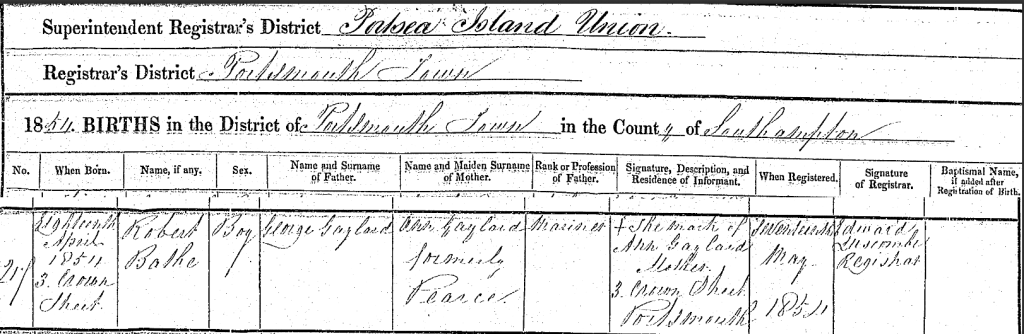 Superintendent Registrar's District Portsea Island Union.
Registrar's District Portsmouth Town
1854. BIRTHS in the District of Portsmouth Town in the County of Southampton
No. When Born. Name, if any. Sex. Name and Surname of Father. Name and Maiden Surname of Mother. Rank or Profession of Father. Signature, Description, and Residence of Informant. When Registered. Signature of Registrar. Baptismal Name, if added after Registration of Birth.
Eighteenth
April
1854
3. Crown
Street
Robert
Bathe
Boy
George Gaylard
Ann Gaylard
formerly
Pearce
Mariner
+ The mark of
Ann Gaylard
Mother.
3. Crown Street
Portsmouth
Seventeenth
May
1854
Edward
Luscombe
Registrar